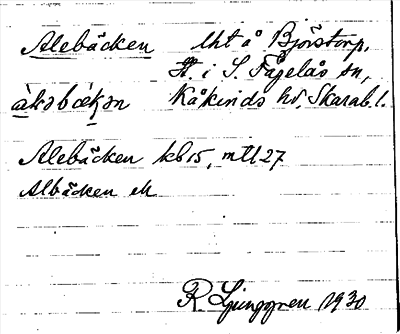 Alebäcken Uht å Björstorp,
H. i S. Fågelås sn,
àkəbœ́kən Kåkinds hd, Skarab. l.
Alebäcken kb 15, mtl 27
Albäcken ek
R. Ljunggren 1930